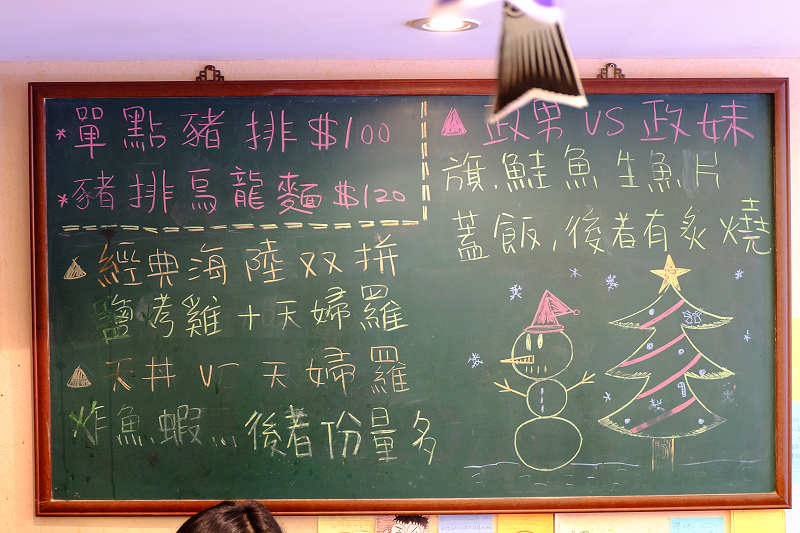 *單點豬排$100
*豬排烏龍麵$120
▲經典海陸双拼
鹽考雞+天婦羅
▲天丼 vs 天婦羅
炸魚.蝦...後者份量多
▲政男 vs 政妹
旗.鮭魚生魚片
蓋飯,後者有炙燒